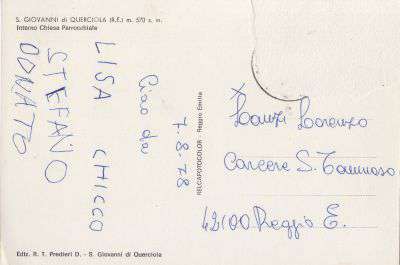 S. GIOVANNI di QUERCIOLA (R.E.) m. 570 s. m.
Interno Chiesa Parrocchiale
Ciao da
LISA CHICCO
STEFANO
DONATO
7.8.78
RELCAFOTOCOLOR Reggio Emilia
Lorenzo
Carcere S. Tommaso
42100 Reggio E.
Ediz. R. T. Predieri D. - S. Giovanni di Querciola